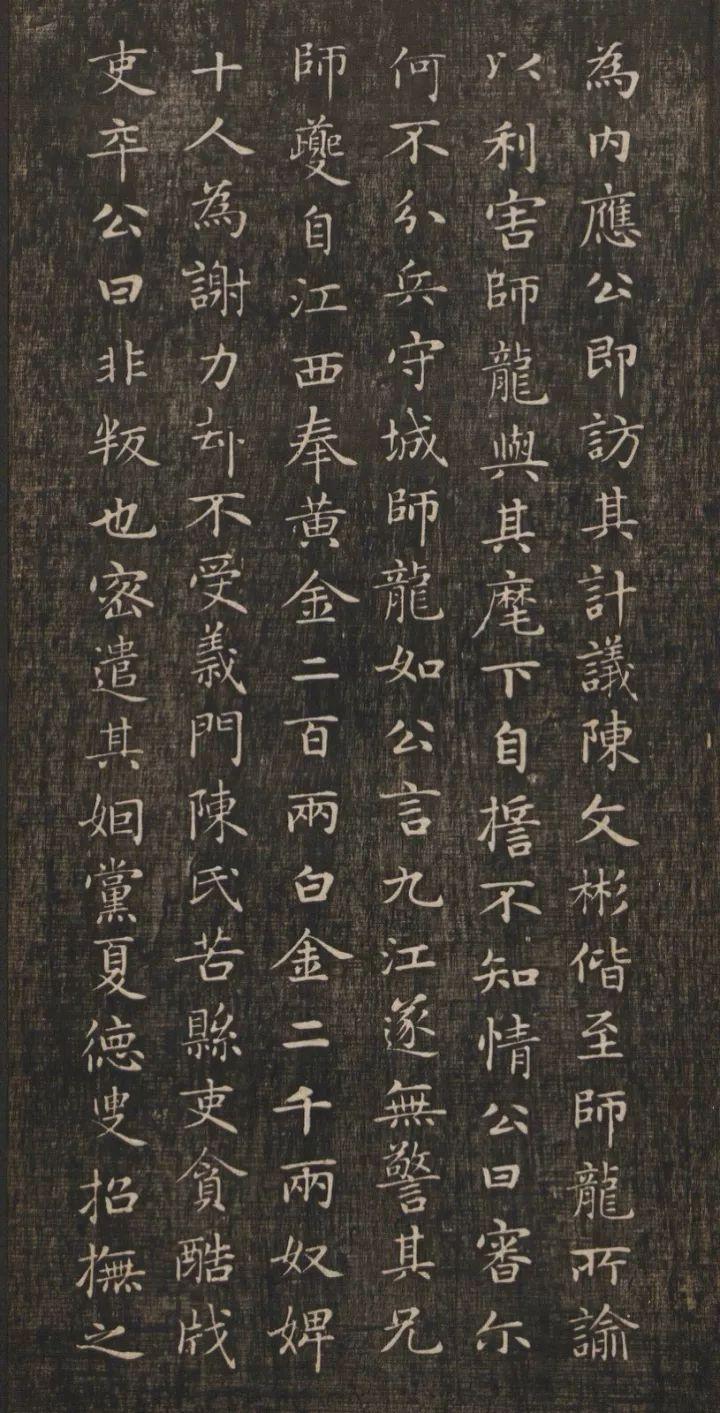 為内應公即訪其計議陳文彬偕至師龍所諭
以利害師龍與其麾下自擔不知情公曰審尓
何不分兵守城師龍如公言九江遂無警其兄
師夔自江西奉黄金二百兩白金二千兩奴婢
十人為謝力却不受義門陳氏苦縣吏貪酷戕
吏卒公曰非叛也宻遣其姻黨夏德叟招撫之